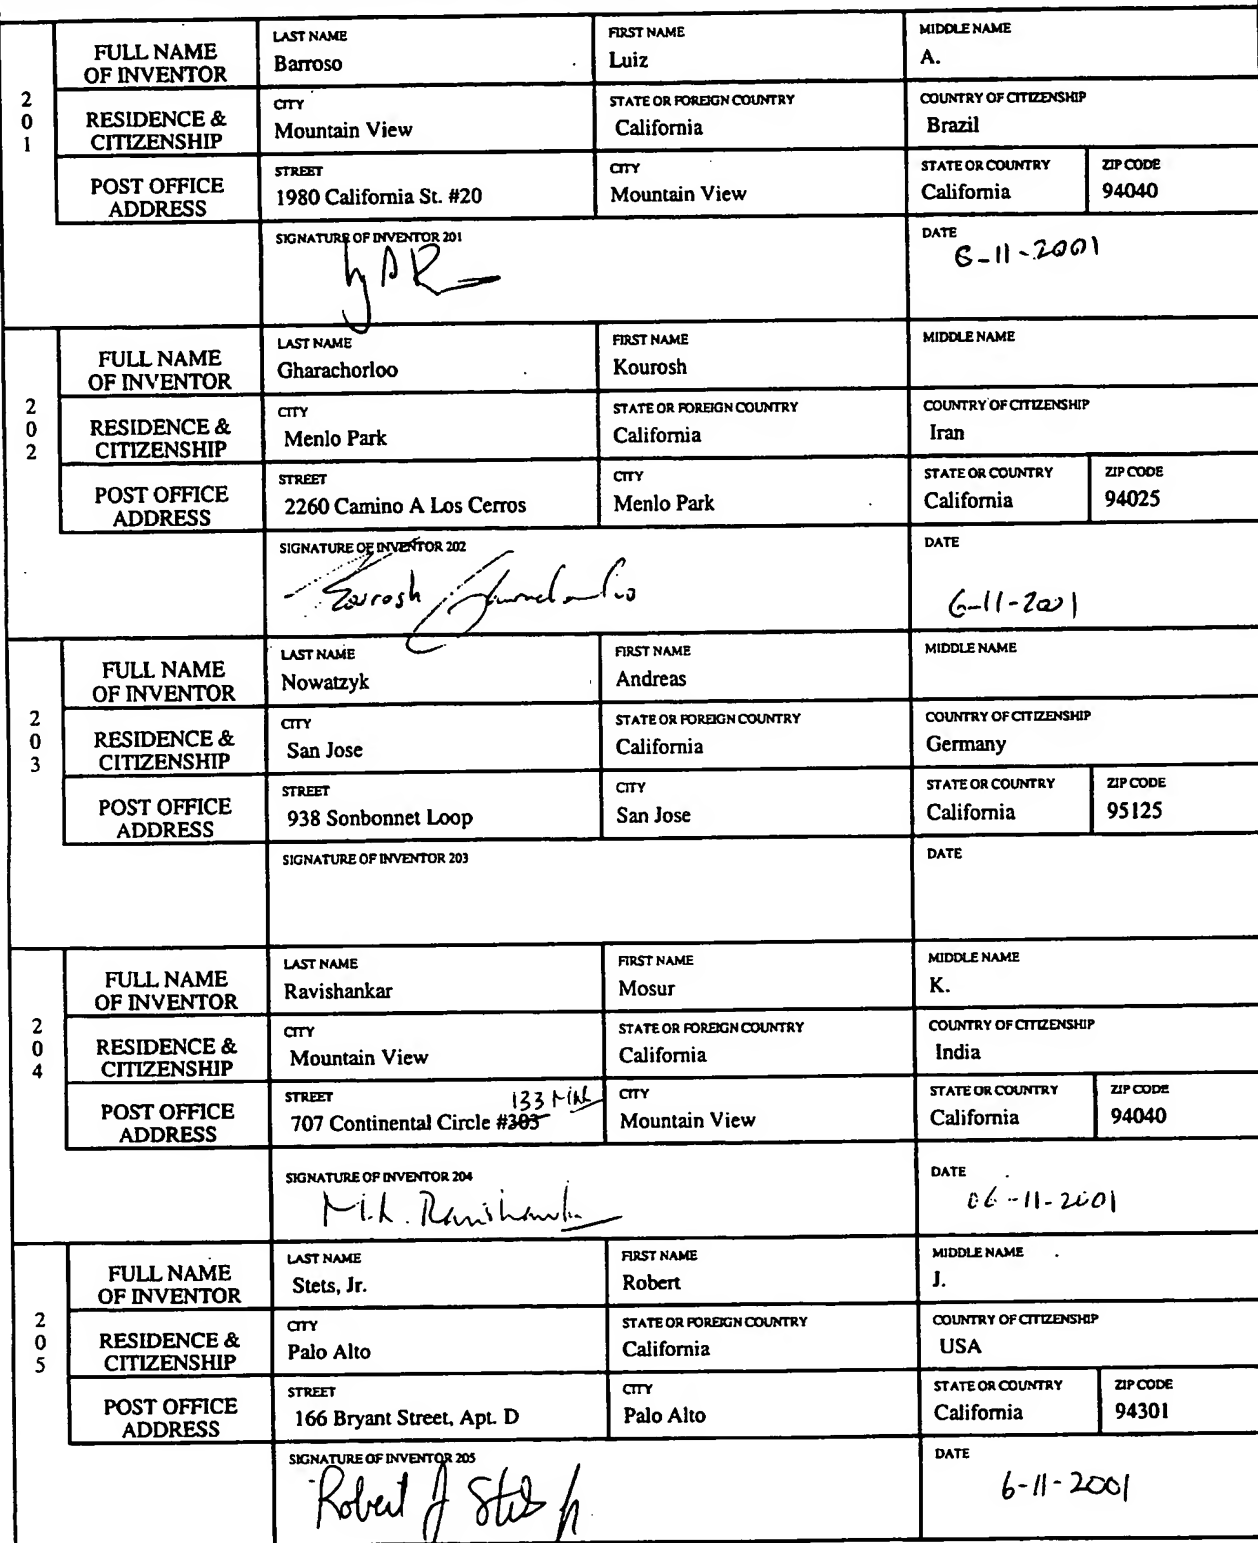 201
FULL NAME OF INVENTOR
LAST NAME
Barroso
FIRST NAME
Luiz
MIDDLE NAME
A.
RESIDENCE & CITIZENSHIP
CITY
Mountain View
STATE OR FOREIGN COUNTRY
California
COUNTRY OF CITIZENSHIP
Brazil
POST OFFICE ADDRESS
STREET
1980 California St. #20
CITY
Mountain View
STATE OR COUNTRY
California
ZIP CODE
94040
SIGNATURE OF INVENTOR 201
DATE
6-11-2001
202
FULL NAME OF INVENTOR
LAST NAME
Gharachorloo
FIRST NAME
Kourosh
MIDDLE NAME
RESIDENCE & CITIZENSHIP
CITY
Menlo Park
STATE OR FOREIGN COUNTRY
California
COUNTRY OF CITIZENSHIP
Iran
POST OFFICE ADDRESS
STREET
2260 Camino A Los Cerros
CITY
Menlo Park
STATE OR COUNTRY
California
ZIP CODE
94025
SIGNATURE OF INVENTOR 202
Kourosh Gharachorloo
DATE
6-11-2001
203
FULL NAME OF INVENTOR
LAST NAME
Nowatzyk
FIRST NAME
Andreas
MIDDLE NAME
RESIDENCE & CITIZENSHIP
CITY
San Jose
STATE OR FOREIGN COUNTRY
California
COUNTRY OF CITIZENSHIP
Germany
POST OFFICE ADDRESS
STREET
938 Sonbonnet Loop
CITY
San Jose
STATE OR COUNTRY
California
ZIP CODE
95125
SIGNATURE OF INVENTOR 203
DATE
204
FULL NAME OF INVENTOR
LAST NAME
Ravishankar
FIRST NAME
Mosur
MIDDLE NAME
K.
RESIDENCE & CITIZENSHIP
CITY
Mountain View
STATE OR FOREIGN COUNTRY
California
COUNTRY OF CITIZENSHIP
India
POST OFFICE ADDRESS
STREET
133
707 Continental Circle #303
CITY
Mountain View
STATE OR COUNTRY
California
ZIP CODE
94040
SIGNATURE OF INVENTOR 204
M.K. Ravishankar
DATE
06-11-2001
205
FULL NAME OF INVENTOR
LAST NAME
Stets, Jr.
FIRST NAME
Robert
MIDDLE NAME
J.
RESIDENCE & CITIZENSHIP
CITY
Palo Alto
STATE OR FOREIGN COUNTRY
California
COUNTRY OF CITIZENSHIP
USA
POST OFFICE ADDRESS
STREET
166 Bryant Street, Apt. D
CITY
Palo Alto
STATE OR COUNTRY
California
ZIP CODE
94301
SIGNATURE OF INVENTOR 205
Robert J Stets Jr
DATE
6-11-2001